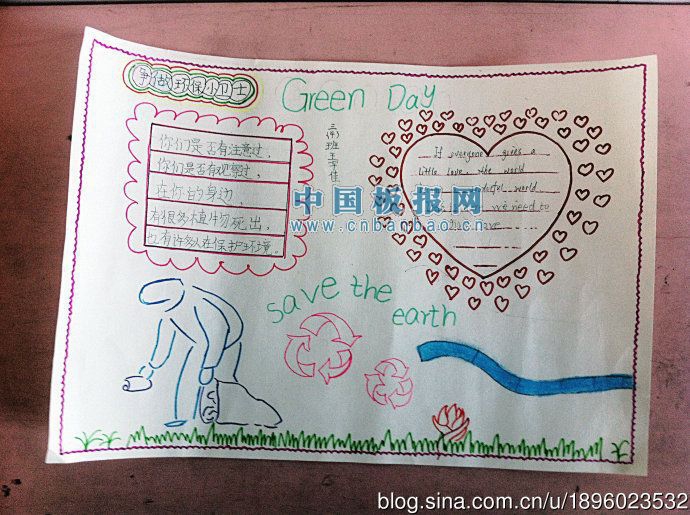 争做环保小卫士
Green Day
你们是否有注意过，
你们是否有观察过，
在你的身边，
有很多植物死出，
也有许多人在保护环境。
三(4)班王宇佳
If everyone gives a
little love, the world
wonderful world
we need to
love
中国板报网
www.cnbanbao.cn
save the
earth
blog.sina.com.cn/u/1896023532